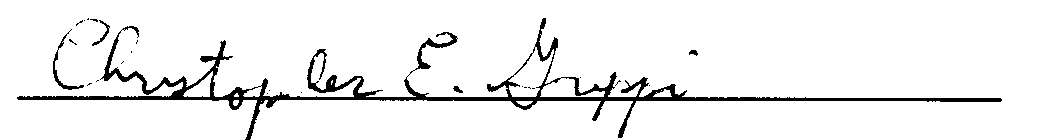 Christopher E. Grippi